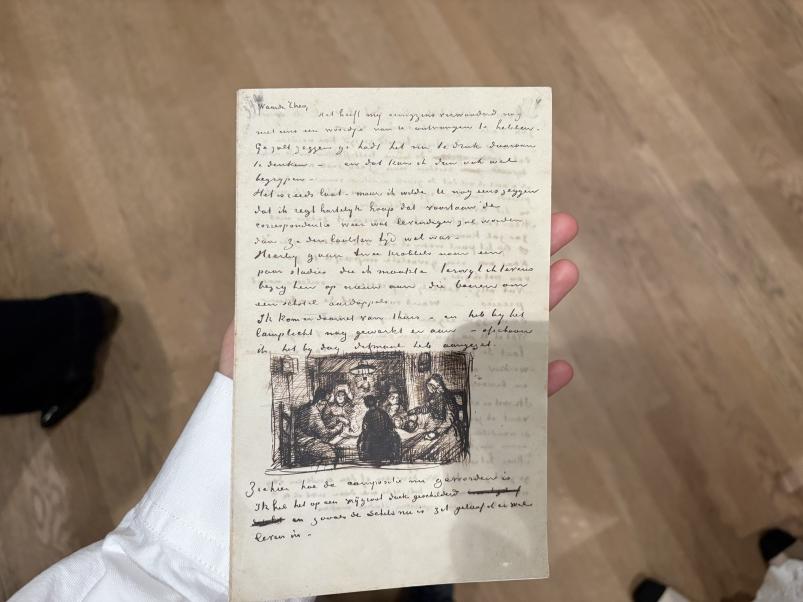 Waarde Theo,
Het heeft my eenigzins verwonderd nog
niet eens een woordje van U ontvangen te hebben.
Ge zult zeggen ge hadt het nu te druk daaraan
te denken – en dat kan ik dan ook wel
begrypen –
Het is reeds laat – maar ik wilde U nog eens zeggen
dat ik regt hartelyk hoop dat voortaan de
correspondentie weer wat levendiger zal worden
dan ze den laatsten tyd wel was –
Hierby gaan twee krabbels naar een
paar studies die ik maakte terwyl ik tevens
bezig ben op nieuw aan die boeren om
een schotel aardappels.
Ik kom er daarnet van thuis – en heb by het
lamplicht nog gewerkt er aan – ofschoon
ik het by dag ditmaal heb aangezet.
Ziehier hoe de compositie nu geworden is.
Ik heb het op een vry groot doek geschilderd
en zooals de schets nu is zit geloof ik er wel
leven in –